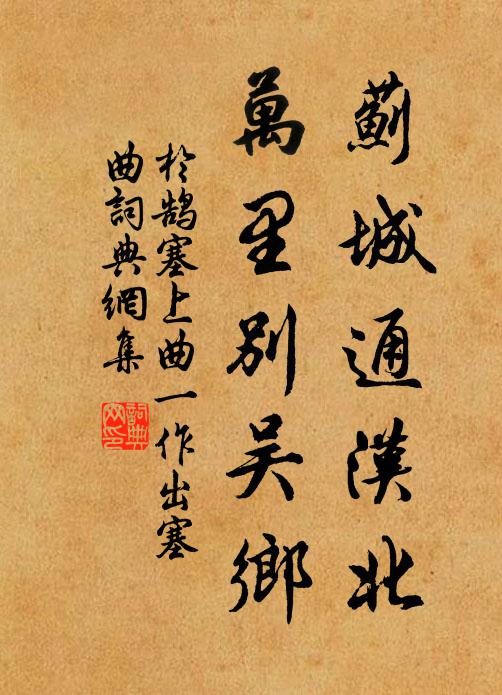 薊城通漢北
萬里別吳鄉
於鵠塞上曲一作出塞
曲詞典網集
詞典
网印